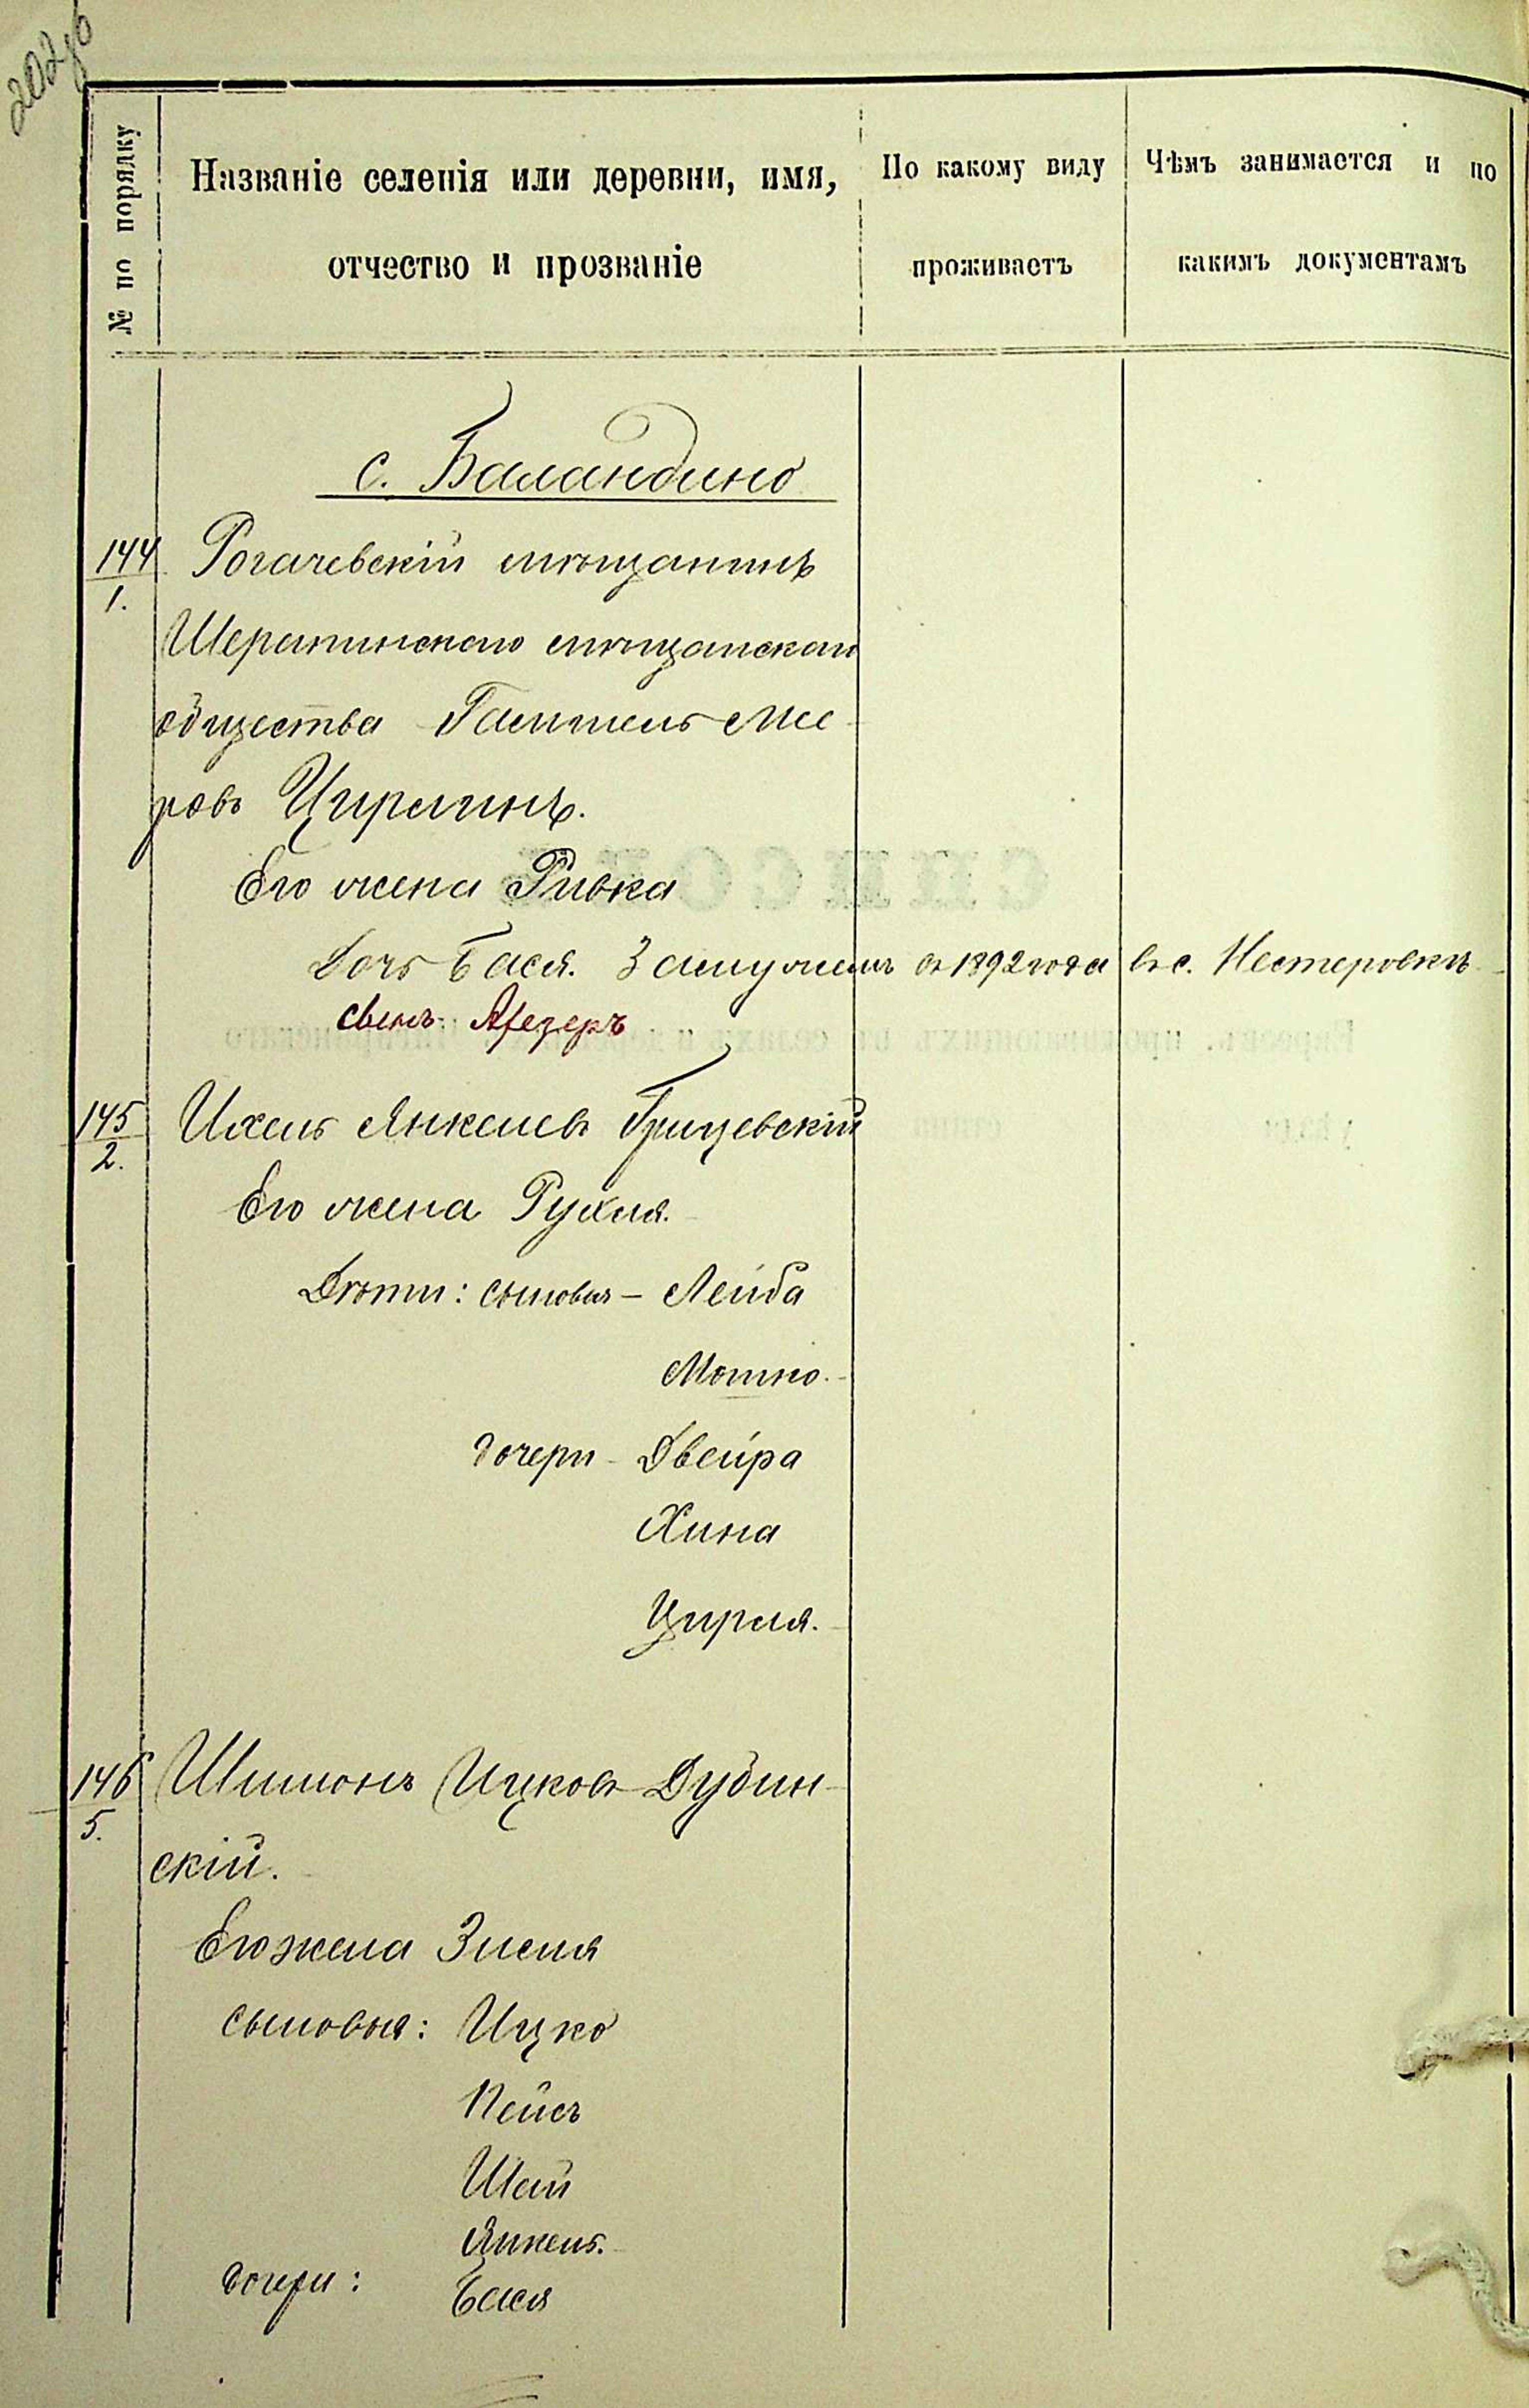 № по порядку
Названіе селенія или деревни, имя,
отчество и прозваніе
По какому виду
проживаетъ
Чѣмъ занимается и по
какимъ документамъ
с. Баландино
144
1.
Рогачевскій мѣщанинъ
мѣщанскаго
общества Гашель Ме
ровъ Цирлинъ.
Его жена Ривка
Дочь Бася. Замужемъ съ 1892 года въ с. Нестеровкѣ
сынъ
145
2.
Ихель Янкелевъ Грищевскій
Его жена Рухля.
Дѣти: сыновья - Лейба
Мотко.
дочери - Двейра
Хина
Цирля.
146
5.
Шимонъ Ицковъ Дубин
скій.
Его жена Зисля
сыновья: Ицко
Пейсъ
Шай
Янкель.
дочери:
Бася